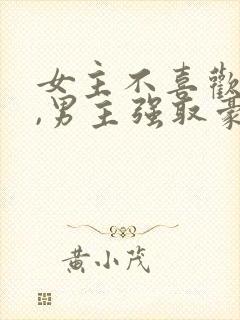 女主不喜歡
,男主强取豪
黄小茂